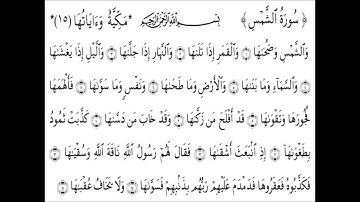 ﴿ سُورَةُ ٱلشَّمْسِ ﴾ بِسْمِ ٱللَّهِ ٱلرَّحْمَٰنِ ٱلرَّحِيمِ *مَكِّيَّةٌ وَءَايَاتُهَا (١٥)*
وَٱلشَّمْسِ وَضُحَىٰهَا ۝١ وَٱلْقَمَرِ إِذَا تَلَىٰهَا ۝٢ وَٱلنَّهَارِ إِذَا جَلَّىٰهَا ۝٣ وَٱلَّيْلِ إِذَا يَغْشَىٰهَا
۝٤ وَٱلسَّمَآءِ وَمَا بَنَىٰهَا ۝٥ وَٱلْأَرْضِ وَمَا طَحَىٰهَا ۝٦ وَنَفْسٍ وَمَا سَوَّىٰهَا ۝٧ فَأَلْهَمَهَا
فُجُورَهَا وَتَقْوَىٰهَا ۝٨ قَدْ أَفْلَحَ مَن زَكَّىٰهَا ۝٩ وَقَدْ خَابَ مَن دَسَّىٰهَا ۝١٠ كَذَّبَتْ ثَمُودُ
بِطَغْوَىٰهَآ ۝١١ إِذِ ٱنۢبَعَثَ أَشْقَىٰهَا ۝١٢ فَقَالَ لَهُمْ رَسُولُ ٱللَّهِ نَاقَةَ ٱللَّهِ وَسُقْيَىٰهَا ۝١٣
فَكَذَّبُوهُ فَعَقَرُوهَا فَدَمْدَمَ عَلَيْهِمْ رَبُّهُم بِذَنۢبِهِمْ فَسَوَّىٰهَا ۝١٤ وَلَا يَخَافُ عُقْبَىٰهَا ۝١٥